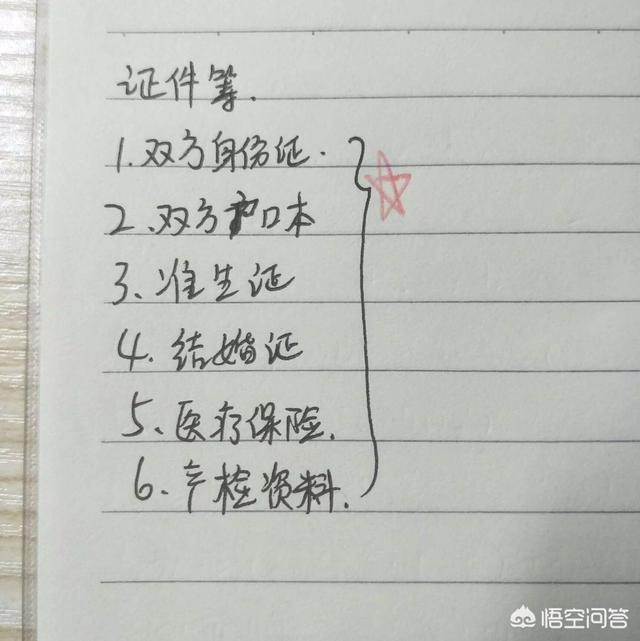 证件等.
1. 双方身份证.
2、双方户口本
3、准生证
4. 结婚证
5、医疗保险.
6. 产检资料.
悟空问答